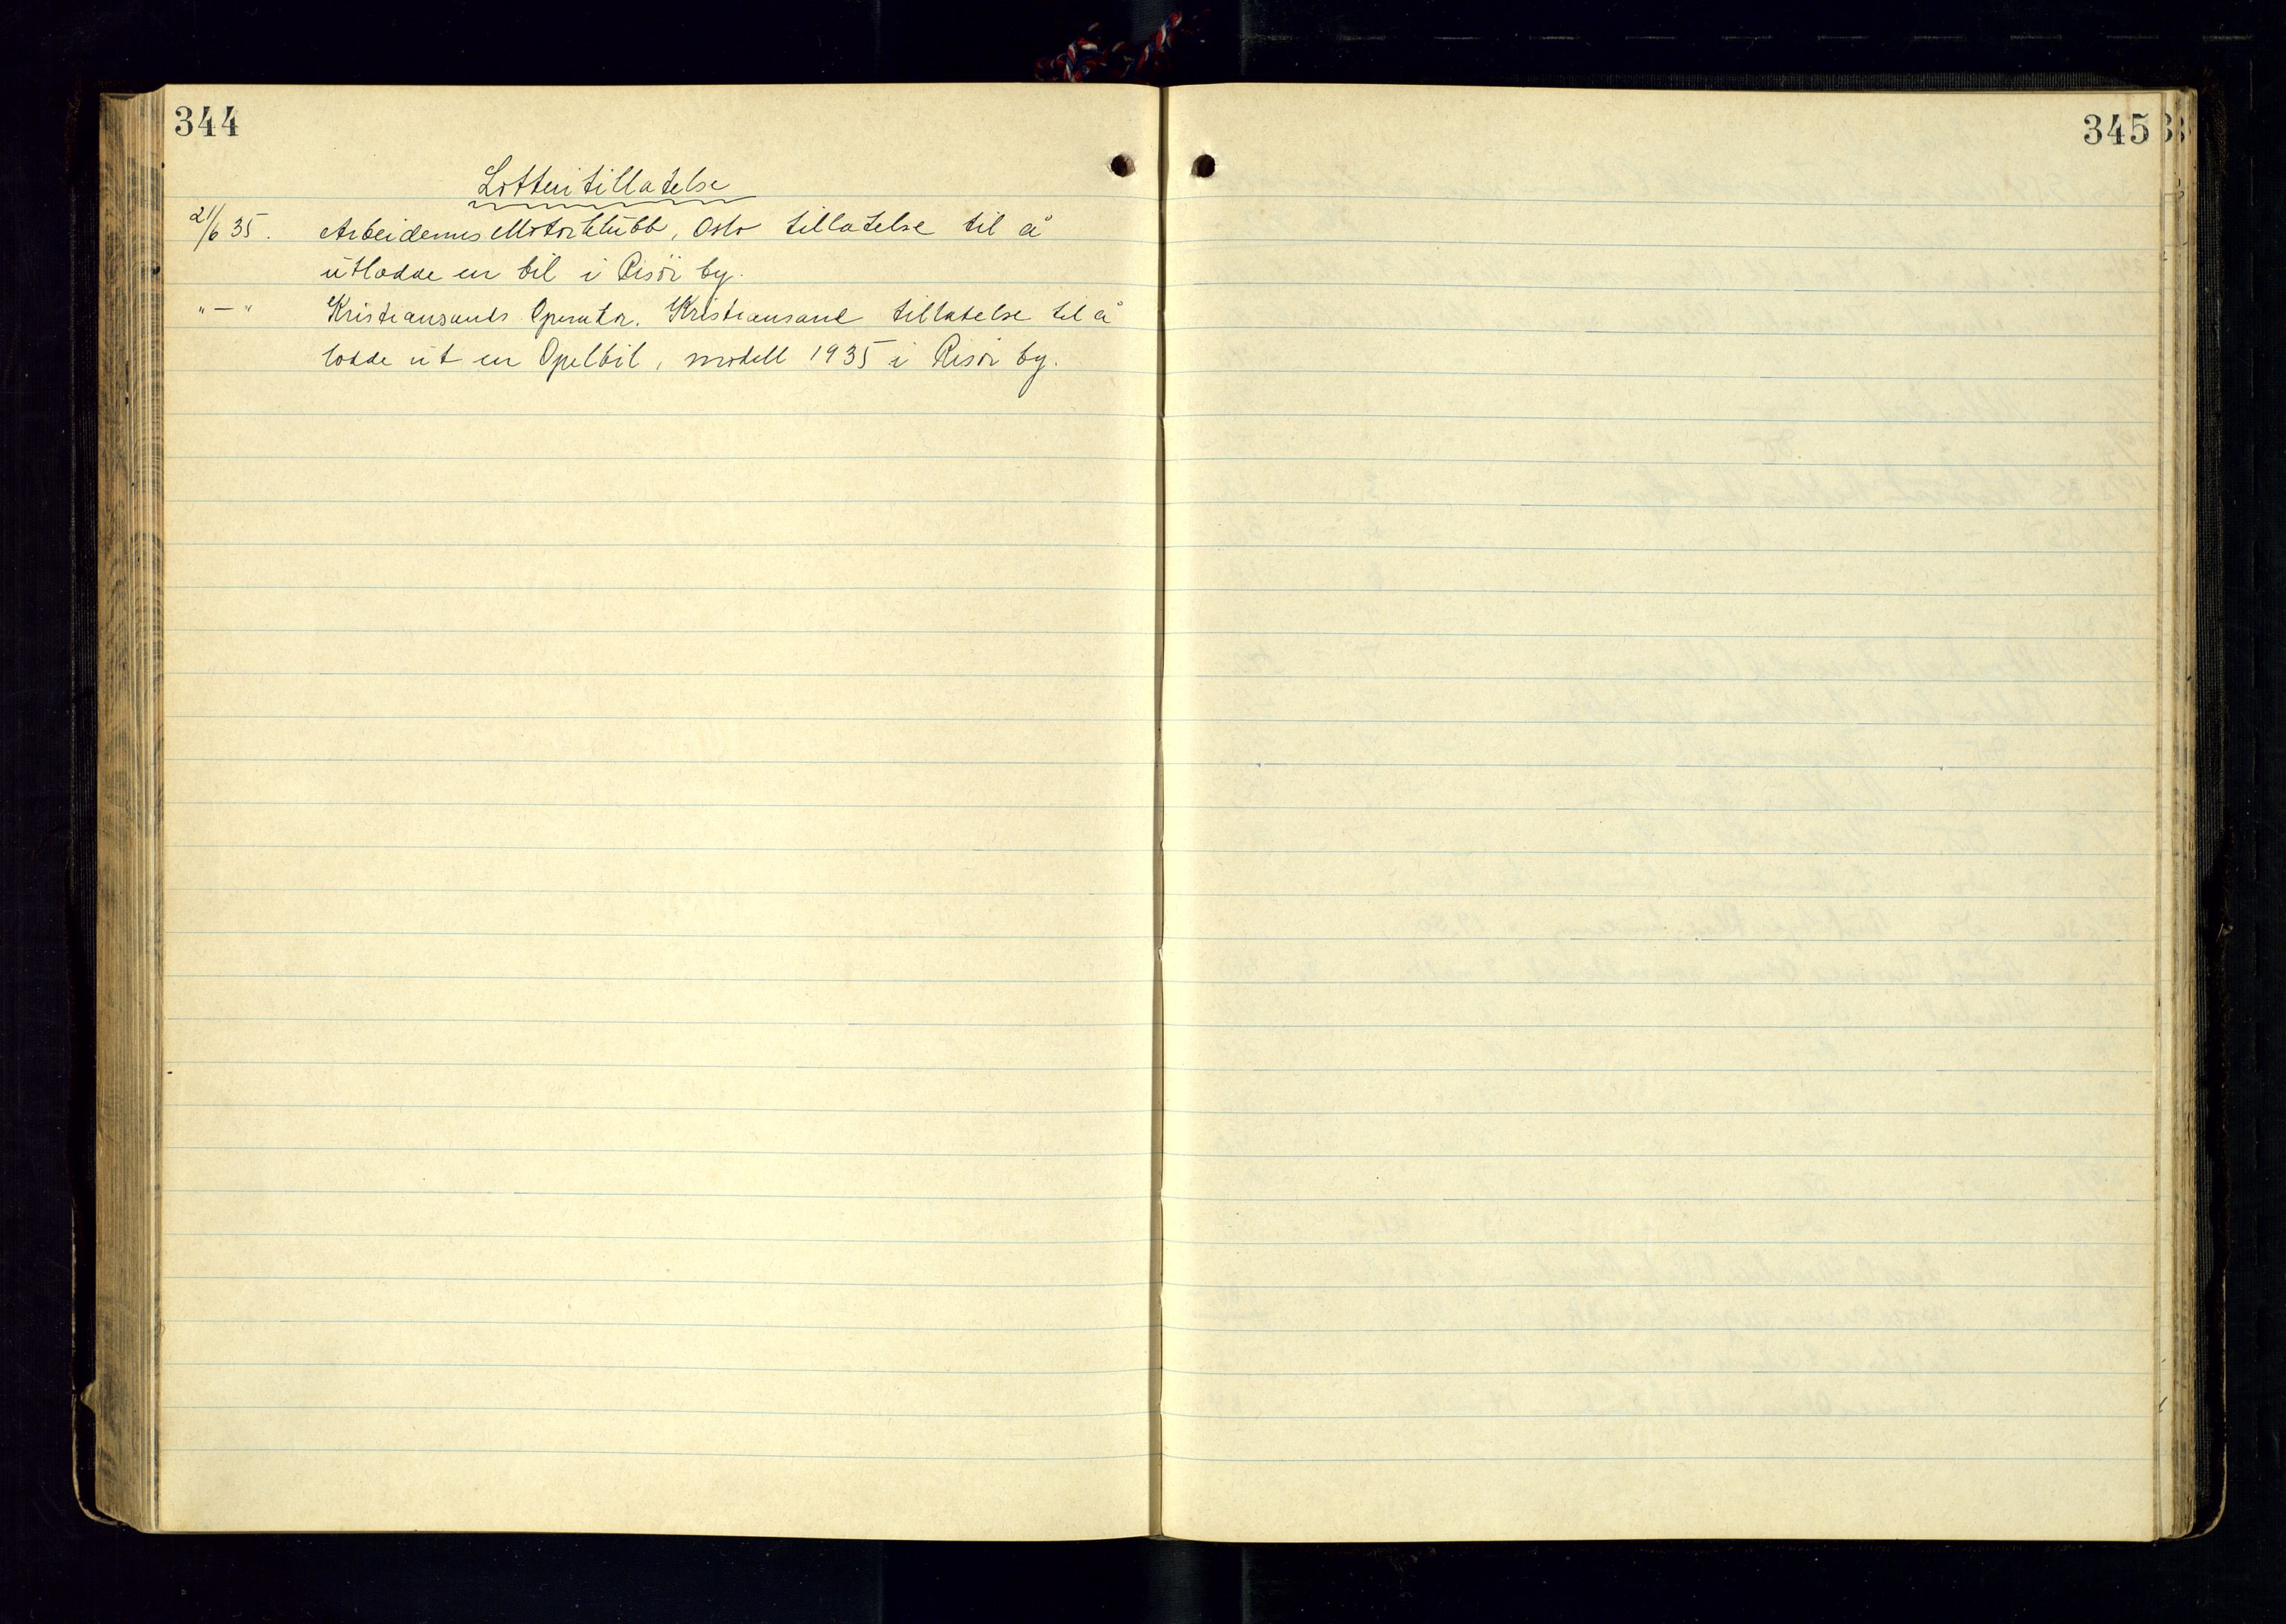 344
Lotteritillatelse
21/6 35. Arbeidernes Motorklubb, Oslo tillatelse til å
utlodde en bil i Risør by.
"—" Kristiansands Operator. Kristiansand tillatelse til å
lodde ut en Opelbil, modell 1935 i Risør by.
345